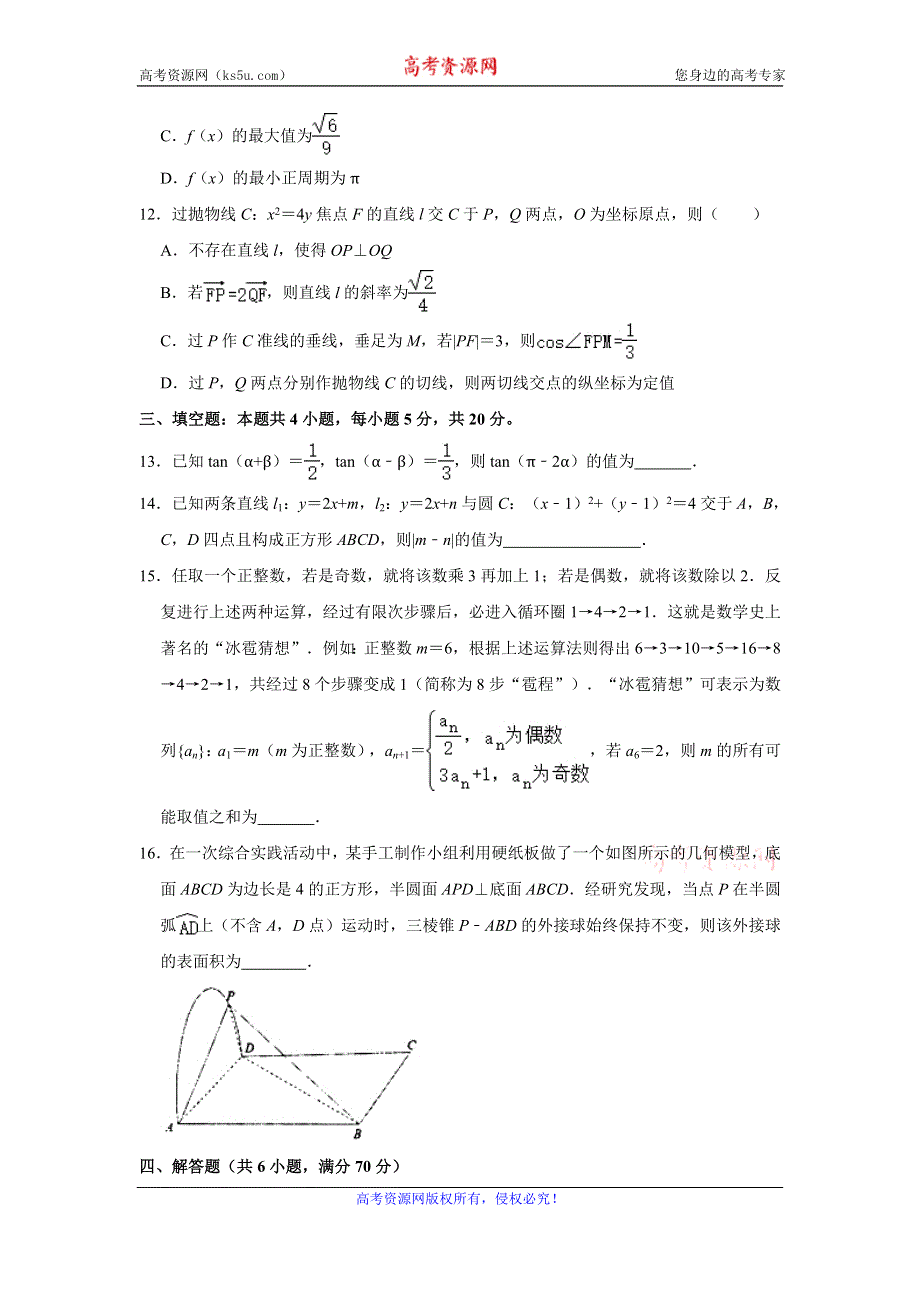 高考资源网（ks5u.com） 高考资源网 您身边的高考专家
C．f（x）的最大值为√6/9
D．f（x）的最小正周期为π
12．过抛物线C：x²＝4y焦点F的直线l交C于P，Q两点，O为坐标原点，则（　　）
A．不存在直线l，使得OP⊥OQ
B．若FP→=2QF→，则直线l的斜率为√2/4
C．过P作C准线的垂线，垂足为M，若|PF|＝3，则cos∠FPM=1/3
D．过P，Q两点分别作抛物线C的切线，则两切线交点的纵坐标为定值
三、填空题：本题共4小题，每小题5分，共20分。
13．已知tan（α+β）＝1/2，tan（α﹣β）＝1/3，则tan（π﹣2α）的值为　　　．
14．已知两条直线l₁：y＝2x+m，l₂：y＝2x+n与圆C：（x﹣1）²+（y﹣1）²＝4交于A，B，
C，D四点且构成正方形ABCD，则|m﹣n|的值为　　　　　　．
15．任取一个正整数，若是奇数，就将该数乘3再加上1；若是偶数，就将该数除以2．反
复进行上述两种运算，经过有限次步骤后，必进入循环圈1→4→2→1．这就是数学史上
著名的“冰雹猜想”．例如：正整数m＝6，根据上述运算法则得出6→3→10→5→16→8
→4→2→1，共经过8个步骤变成1（简称为8步“雹程”）．“冰雹猜想”可表示为数
列{aₙ}：a₁＝m（m为正整数），aₙ₊₁＝{aₙ/2，aₙ为偶数
3aₙ+1，aₙ为奇数，若a₆＝2，则m的所有可
能取值之和为　　　．
16．在一次综合实践活动中，某手工制作小组利用硬纸板做了一个如图所示的几何模型，底
面ABCD为边长是4的正方形，半圆面APD⊥底面ABCD．经研究发现，当点P在半圆
弧AD上（不含A，D点）运动时，三棱锥P﹣ABD的外接球始终保持不变，则该外接球
的表面积为　　　．
P
D
C
A
B
四、解答题（共6小题，满分70分）
高考资源网版权所有，侵权必究！